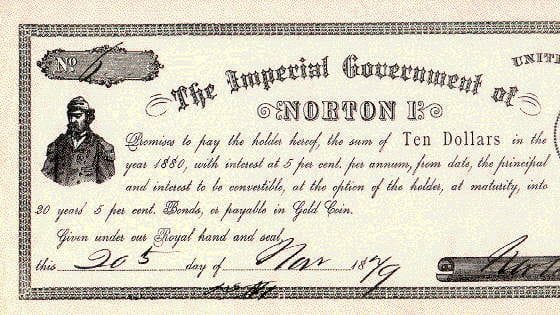 No 6
UNIT
The Imperial Government of
NORTON I.
Promises to pay the holder hereof, the sum of Ten Dollars in the
year 1880, with interest at 5 per cent. per annum, from date, the principal
and interest to be convertible, at the option of the holder, at maturity, into
20 years' 5 per cent. Bonds, or payable in Gold Coin.
Given under our Royal hand and seal
this 20 day of Nov 1879